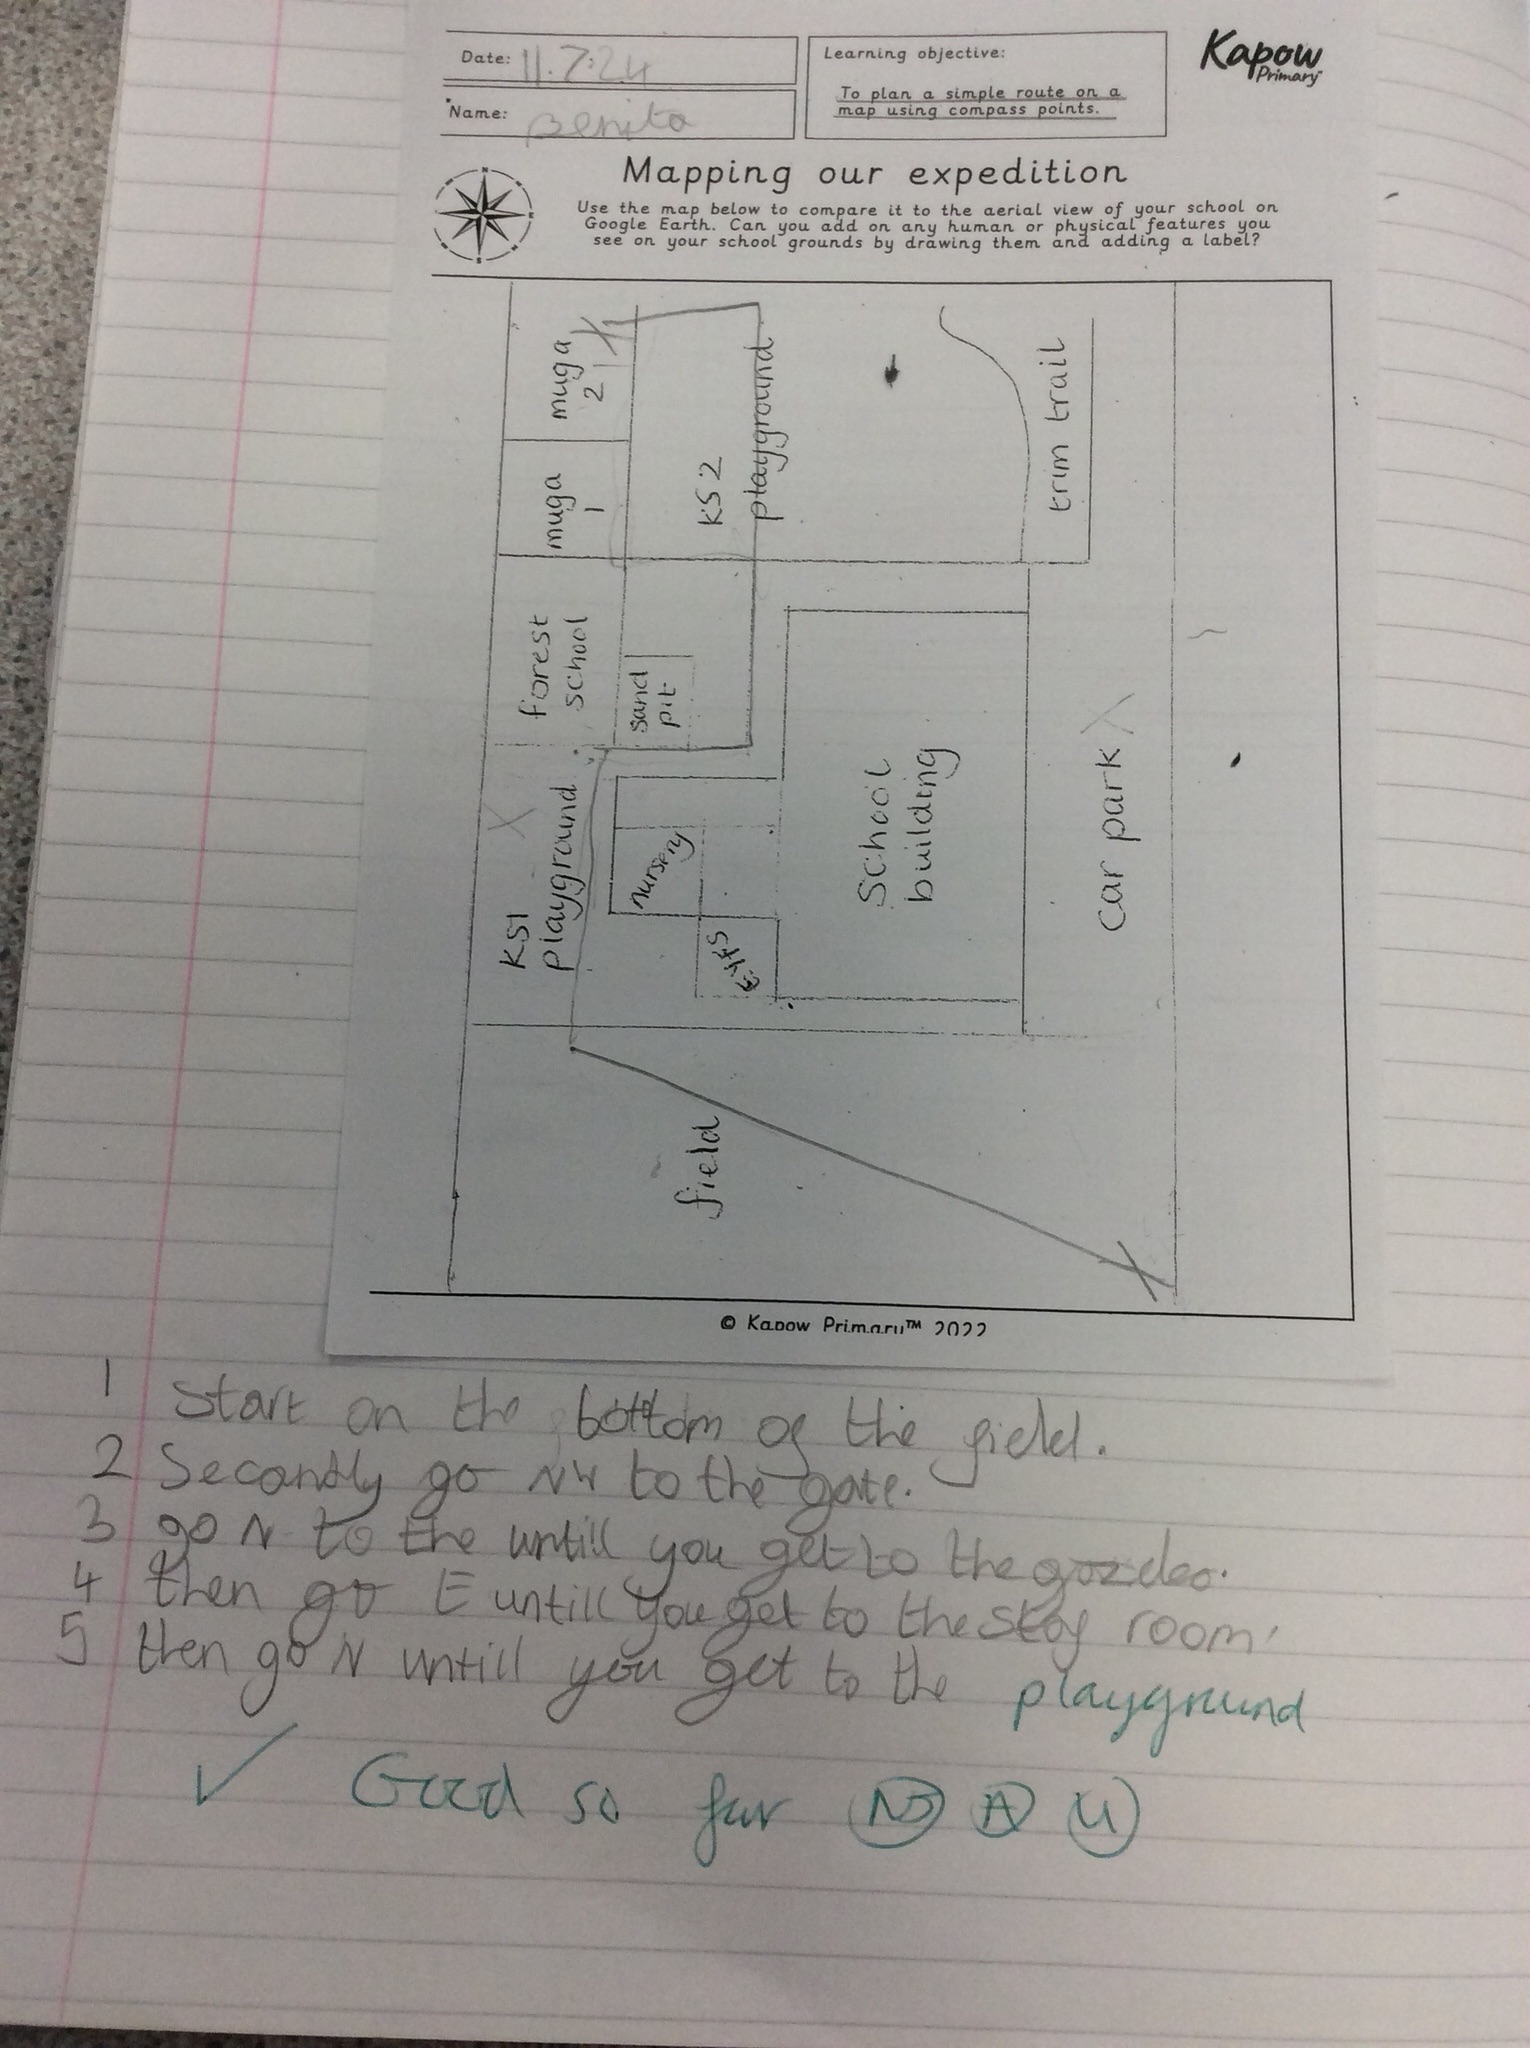 Date: 11.7.24
Name: Benita
Learning objective:
To plan a simple route on a
map using compass points.
Kapow
Primary
N
E
S
Mapping our expedition
Use the map below to compare it to the aerial view of your school on
Google Earth. Can you add on any human or physical features you
see on your school grounds by drawing them and adding a label?
muga
2
muga
1
KS2
playground
trim trail
forest
school
sand
pit
KS1
playground
nursery
EYFS
School
building
car park
field
© Kapow Primary™ 2022
1 Start on the bottom of the field.
2 Secandly go NW to the gate.
3 go N to the untill you get to the
4 then go E untill you get to the room
5 then go N untill you get to the playground
✓ Good so far A U